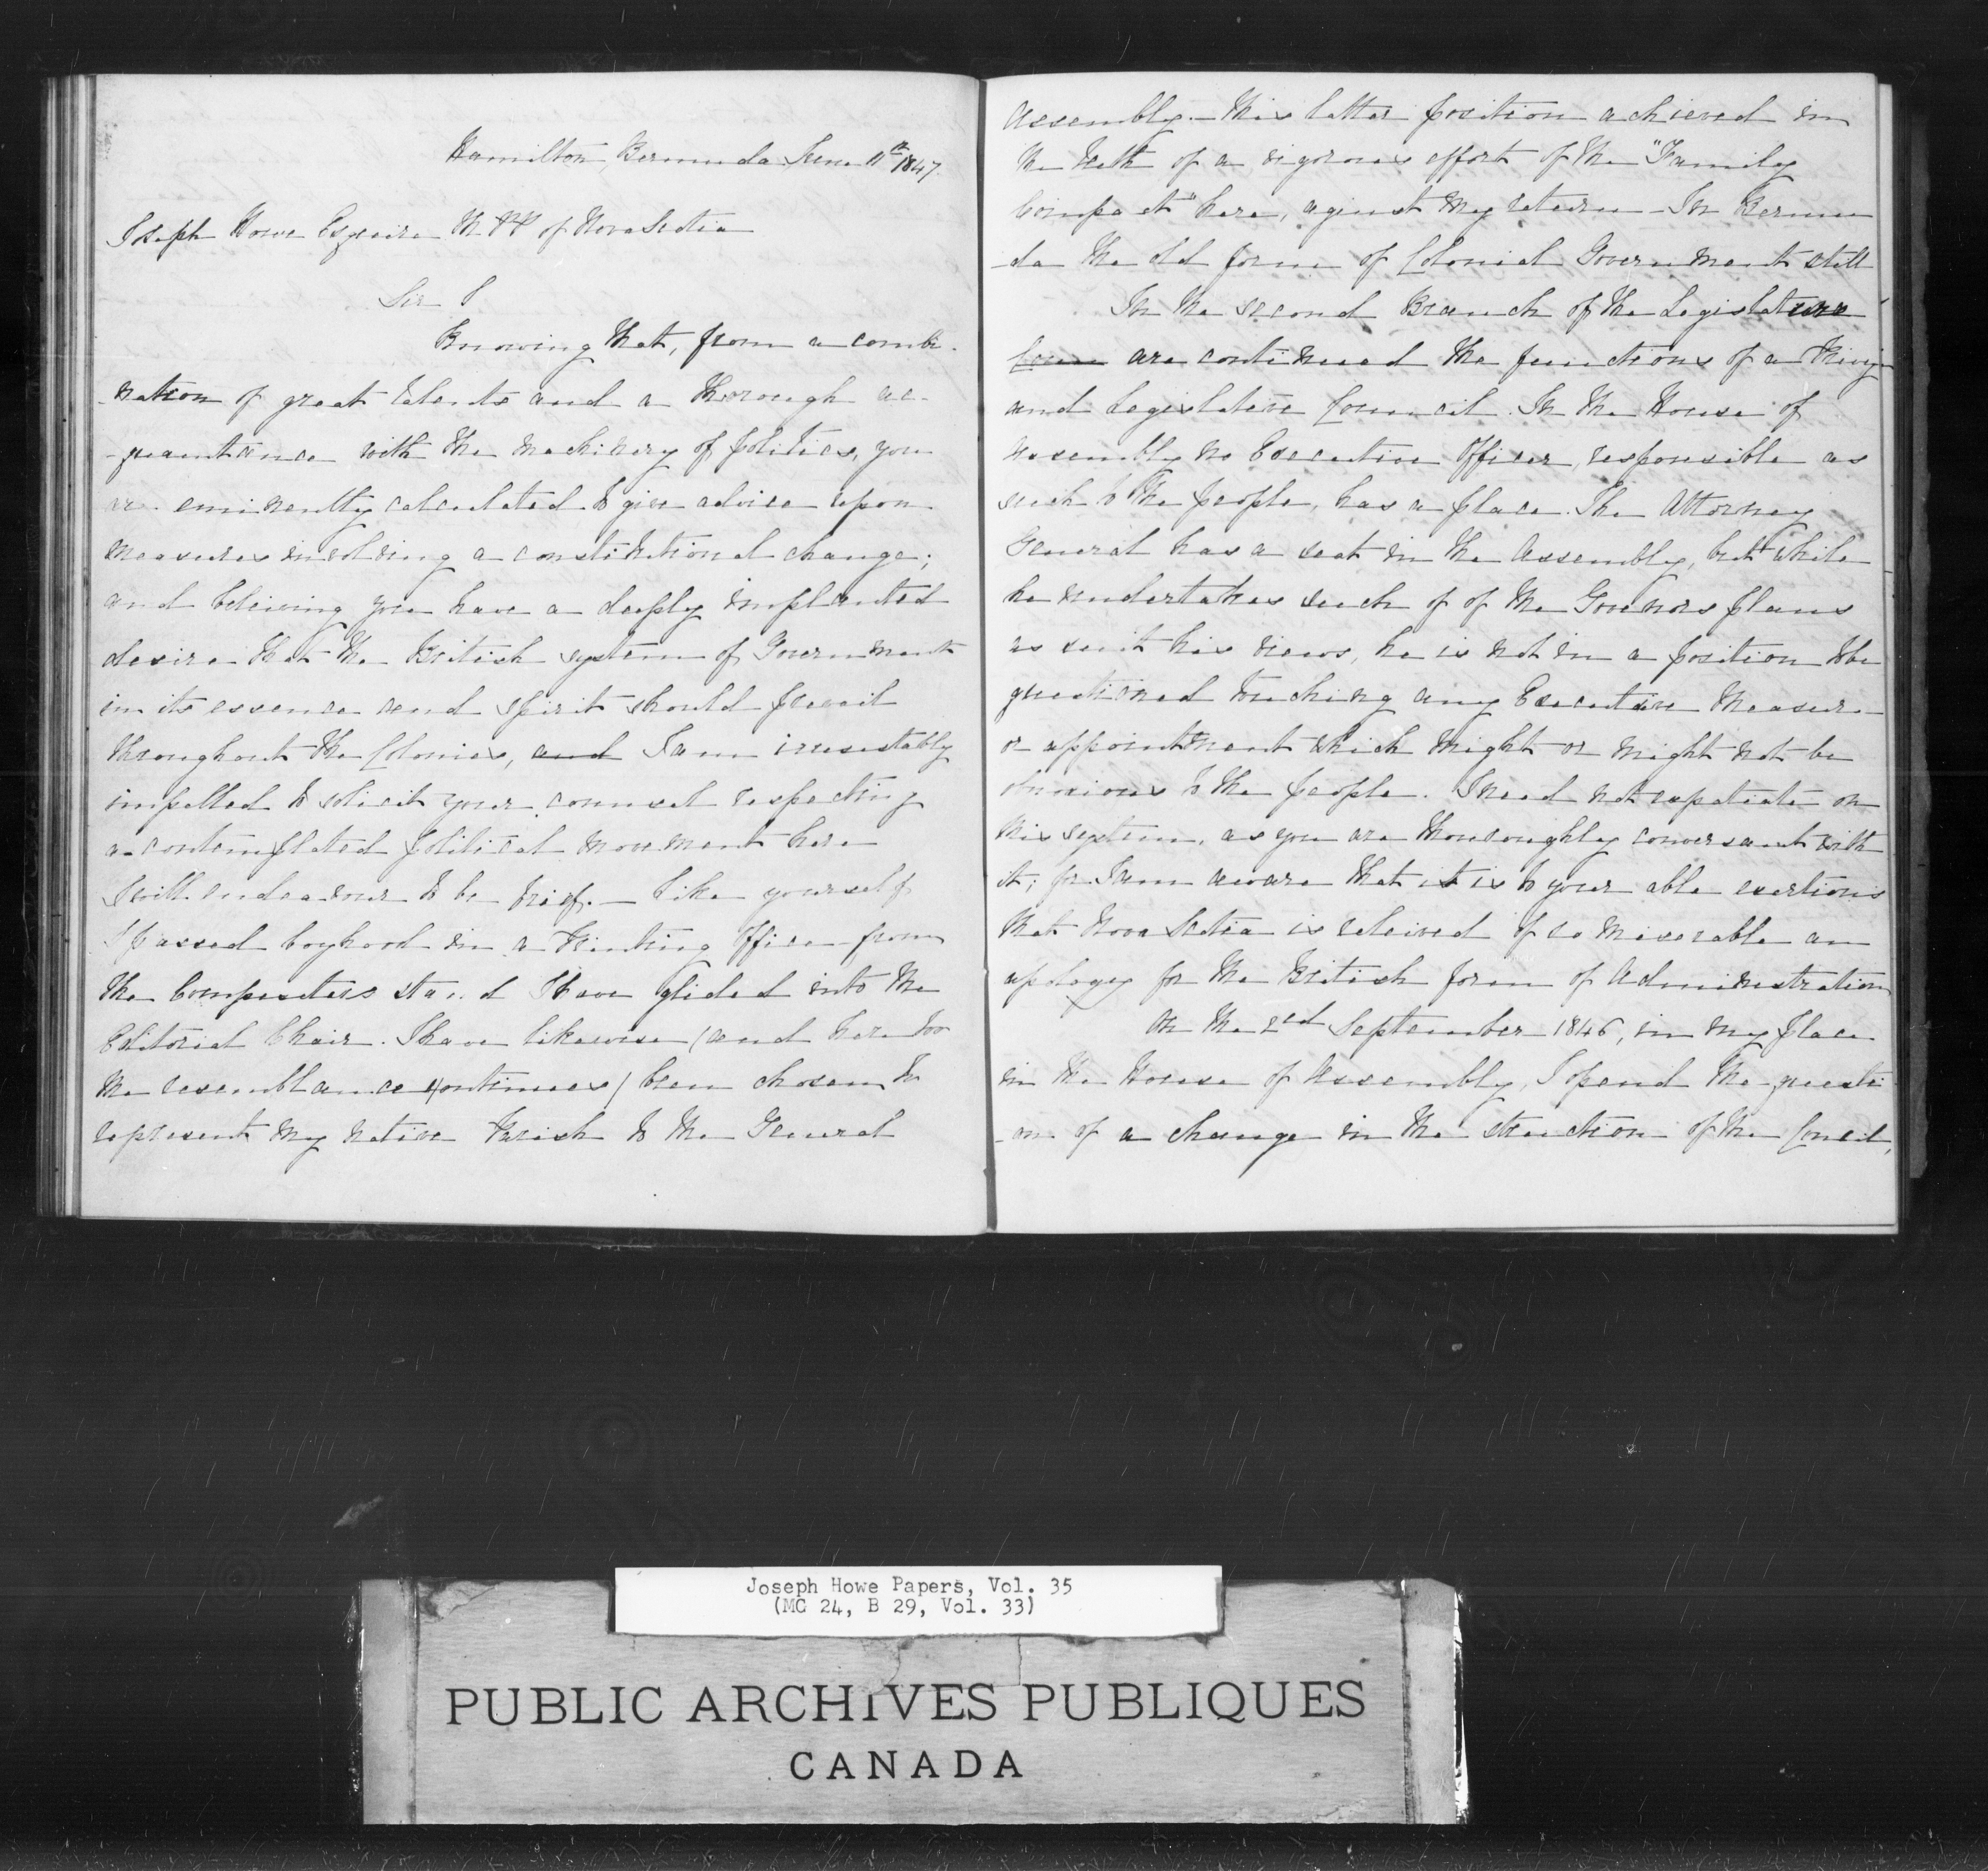 Hamilton, Bermuda June 11th 1847.
Joseph Howe Esquire M.P.P of Nova Scotia
Sir
Knowing that, from a combi-
-nation of great talents and a thorough ac-
-quaintance with the machinery of politics, you
are eminently calculated to give advice upon
measures involving a constitutional change;
and beleiving you have a deeply implanted
desire that the British system of Government
in its essence and spirit should prevail
throughout the Colonies, and I am irresistably
impelled to solicit your counsel respecting
a contemplated political movement here
I will endeavour to be brief. — Like yourself
I passed boyhood in a Printing Office from
the Compositors stand I have glided into the
Editorial Chair. I have likewise (and here too
the resemblance continues) been chosen to
represent my native Parish to the General
Assembly. — This latter position achieved in
the teeth of a vigorous effort of the "Family
Compact" here, aginst my return — In Bermu
-da the old form of Colonial Government still
In the second Branch of the Legislature
are continued the functions of a Privy
and Legislative Council. In the House of
Assembly no Executive Officer, responsible as
such to the people, has a place. The Attorney
General has a seat in the Assembly, but while
he undertakes such of of the Govenors plans
as suit his views, he is not in a position to be
questioned touching any Executive measure
or appointment which might or might not be
obnoxious to the people. I need not expatiate on
this system, as you are thouroughly conversant with
it; for I am aware that it is to your able exertions
that Nova Scotia is releived of so miserable an
apology for the British form of Administration
On the 2nd September 1846, in my place
in the House of Assembly, I opend the questi
-on of a change in the struction of the Concil,
Joseph Howe Papers, Vol. 35
(MG 24, B 29, Vol. 33)
PUBLIC ARCHIVES PUBLIQUES
CANADA